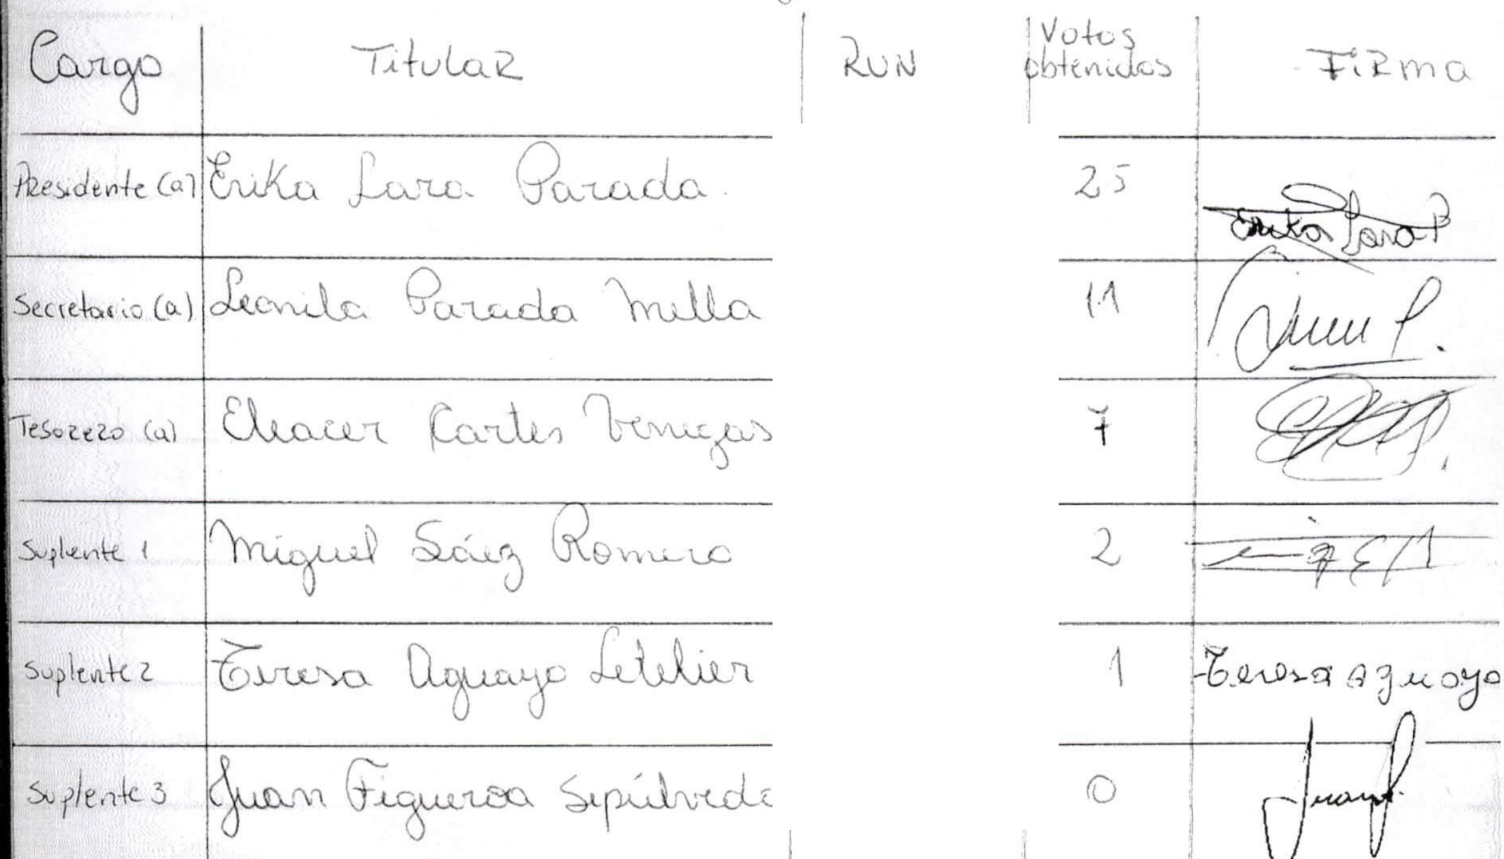 Cargo Titular RUN Votos obtenidos Firma
Presidente (a) Erika Lara Parada. 25 Erika Lara P
Secretario (a) Leonila Parada Mella 11
Tesorero (a) Eleacer Cartes Venegas 7
Suplente 1 Miguel Sáez Romero 2
Suplente 2 Teresa Aguayo Letelier 1 Teresa Aguayo
Suplente 3 Juan Figueroa Sepúlveda 0 Juan F.